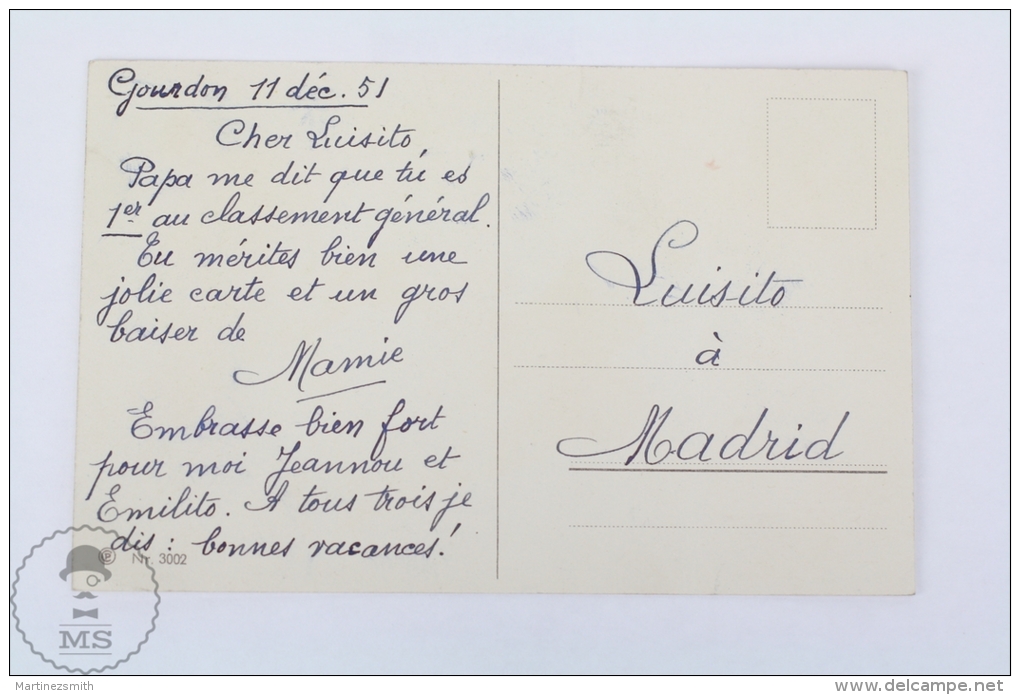 Gourdon 11 déc. 51
Cher Luisito,
Papa me dit que tú es
1er au classement général.
Tu mérites bien une
jolie carte et un gros
baiser de
Mamie
Embrasse bien fort
pour moi Jeannou et
Emilito. A tous trois je
dis : bonnes vacances!
Nr. 3002
Luisito
à
Madrid
MS
Martinezsmith
delcampe.net